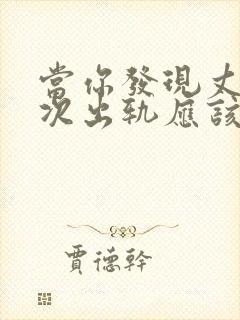 當你發現丈
次出軌應該
賈德幹